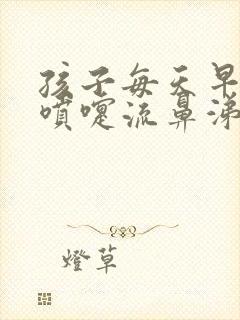 孩子每天早
噴嚏流鼻涕
燈草